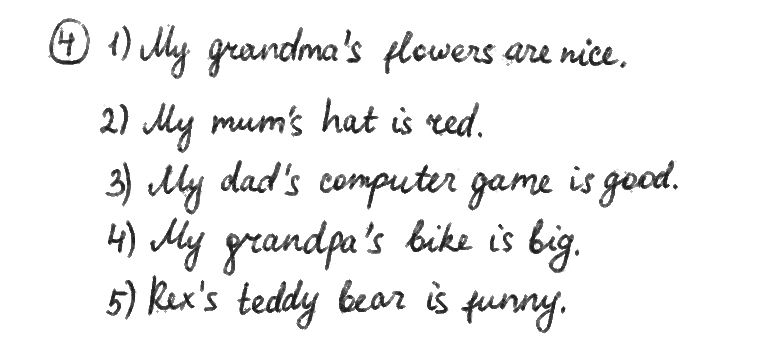 4 1) My grandma's flowers are nice.
2) My mum's hat is red.
3) My dad's computer game is good.
4) My grandpa's bike is big.
5) Rex's teddy bear is funny.